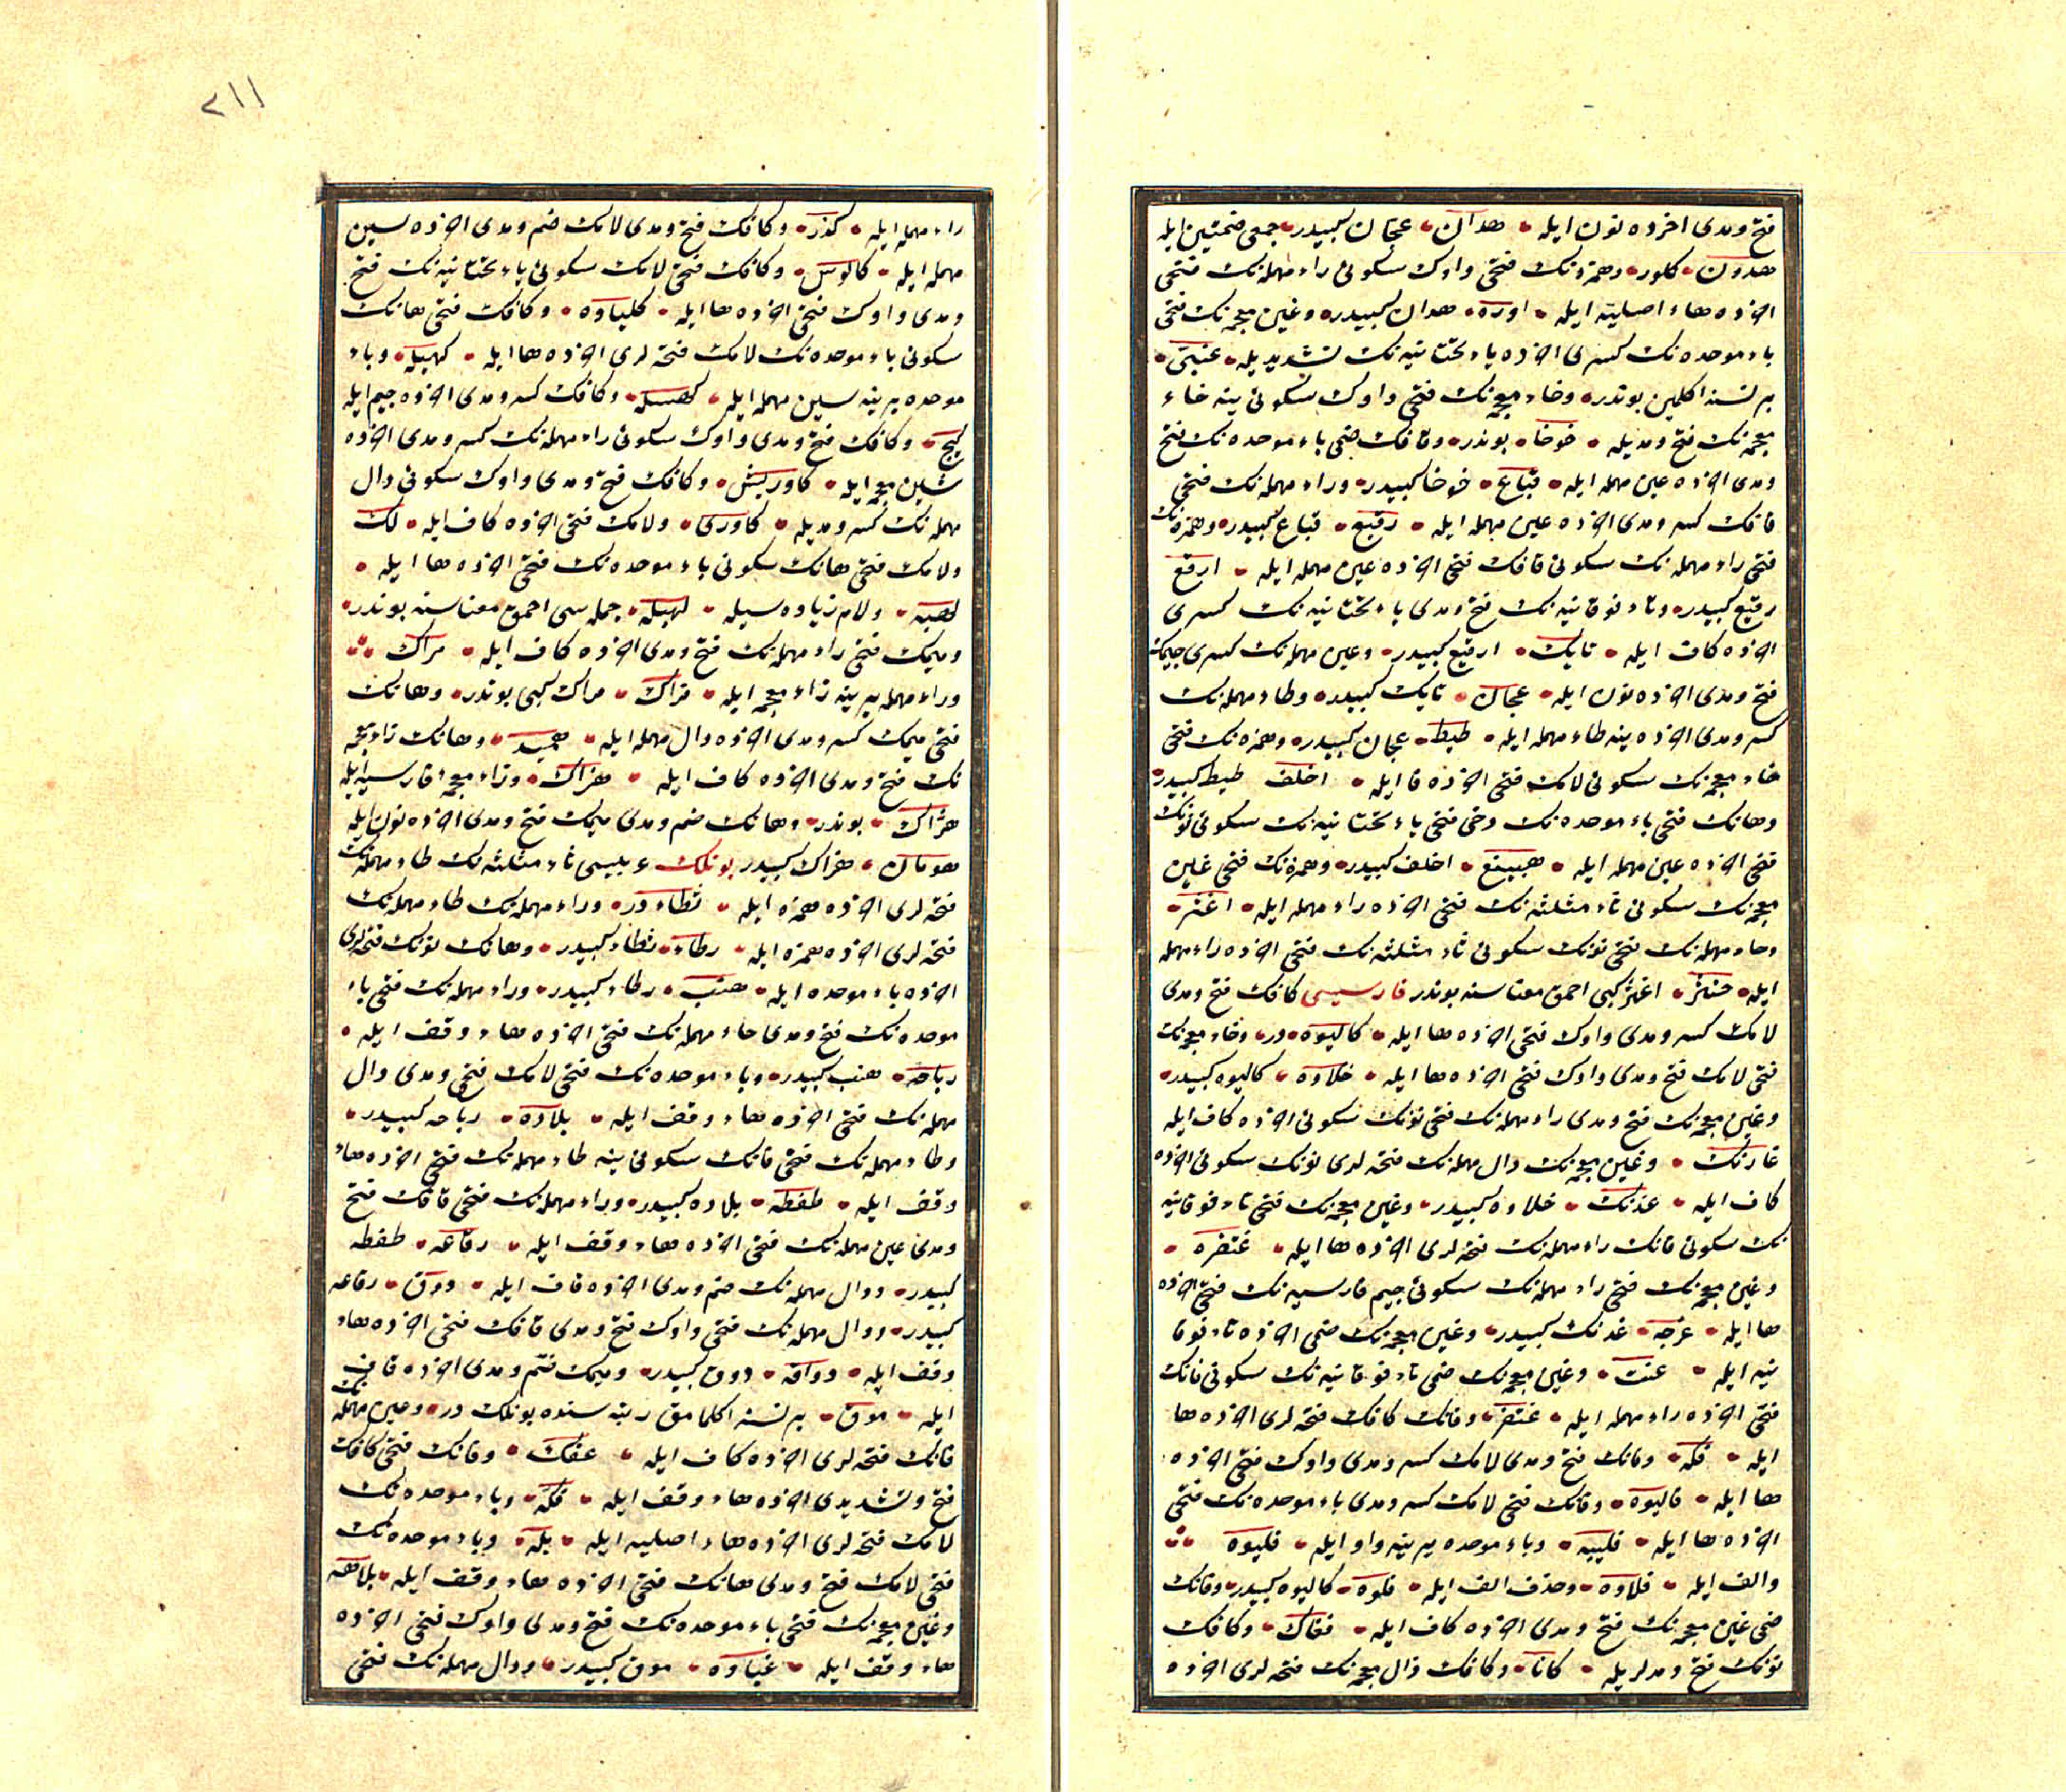 فتح ومدی اخرده نون ایله هدان عجان کبیدر جمعی ضمتین ایله
هدون کلور وهمزه نک فتحی واوک سکونی راء مهمله نک فتحی
اخرده هاء اصلیه ایله اوره هدان کبیدر وغین معجمه نک فتحی
باء موحده نک کسری اخرده یاء تحتانیه نک تشدیدیله غبی
بر نسنه اکلمین بوندر وخاء معجمه نک فتحی واوک سکونی ینه خاء
معجمه نک فتح ومدیله خوخا بوندر وقافک ضمی باء موحده نک فتح
ومدی اخرده عین مهمله ایله قباع خوخا کبیدر وراء مهمله نک فتحی
قافک کسر ومدی اخرده عین مهمله ایله رقیع قباع کبیدر وهمزه نک
فتحی راء مهمله نک سکونی قافک فتحی اخرده عین مهمله ایله ارقع
رقیع کبیدر وتاء فوقانیه نک فتح ومدی یاء تحتانیه نک کسری
اخرده کاف ایله تایک ارقیع کبیدر وعین مهمله نک کسری جیمک
فتح ومدی اخرده نون ایله عجان تایک کبیدر وطاء مهمله نک
کسر ومدی اخرده ینه طاء مهمله ایله طیط عجان کبیدر وهمزه نک فتحی
خاء معجمه نک سکونی لامک فتحی اخرده فا ایله اخلف طیط کبیدر
وهانک فتحی باء موحده نک دخی فتحی یاء تحتانیه نک سکونی نونک
فتحی اخرده عین مهمله ایله هبینع اخلف کبیدر وهمزه نک فتحی غین
معجمه نک سکونی ثاء مثلثه نک فتحی اخرده راء مهمله ایله اغثر
وحاء مهمله نک فتحی نونک سکونی ثاء مثلثه نک فتحی اخرده راء مهمله
ایله حنثر اغثر کبی احمق معناسنه بوندر فارسیسی کافک فتح ومدی
لامک کسر ومدی واوک فتحی اخرده ها ایله کالیوه در وخاء معجمه نک
فتحی لامک فتح ومدی واوک فتحی اخرده ها ایله خلاوه کالیوه کبیدر
وغین معجمه نک فتح ومدی راء مهمله نک فتحی نونک سکونی اخرده کاف ایله
غارنک وغین معجمه نک دال مهمله نک فتحه لری نونک سکونی اخرده
کاف ایله غدنک خلاوه کبیدر وغین معجمه نک فتحی تاء فوقانیه
نک سکونی فانک راء مهمله نک فتحه لری اخرده ها ایله غتفره
وغین معجمه نک فتحی راء مهمله نک سکونی جیم فارسیه نک فتحی اخرده
ها ایله غرچه غدنک کبیدر وغین معجمه نک ضمی اخرده تاء فوقا
نیه ایله غت وغین معجمه نک ضمی تاء فوقانیه نک سکونی فانک
فتحی اخرده راء مهمله ایله غتفر وفانک کافک فتحه لری اخرده ها
ایله فکه وفانک فتح ومدی لامک کسر ومدی واوک فتحی اخرده
ها ایله فالیوه وفانک فتحی لامک کسر ومدی باء موحده نک فتحی
اخرده ها ایله فلیبه وباء موحده یرینه واو ایله فلیوه
والف ایله فلاوه وحذف الف ایله فلوه کالیوه کبیدر وفانک
ضمی غین معجمه نک فتح ومدی اخرده کاف ایله فغاک وکافک
نونک فتح ومدلریله کانا وکافک ذال معجمه نک فتحه لری اخرده
۲۱۱
راء مهمله ایله کذر وکافک فتح ومدی لامک ضم ومدی اخرده سین
مهمله ایله کالوس وکافک فتحی لامک سکونی یاء تحتانیه نک فتح
ومدی واوک فتحی اخرده ها ایله کلیاوه وکافک فتحی هانک
سکونی باء موحده نک لامک فتحه لری اخرده ها ایله کهبله وباء
موحده یرینه سین مهمله ایله کهسله وکافک کسر ومدی اخرده جیم ایله
کیج وکافک فتح ومدی واوک سکونی راء مهمله نک کسر ومدی اخرده
شین معجمه ایله کاوریش وکافک فتح ومدی واوک سکونی دال
مهمله نک کسر ومدیله کاودی ولامک فتحی اخرده کاف ایله لک
ولامک فتحی هانک سکونی باء موحده نک فتحی اخرده ها ایله
لهبه ولام زیاده سیله لهبله جمله سی احمق معناسنه بوندر
ومیمک فتحی راء مهمله نک فتح ومدی اخرده کاف ایله مراک
وراء مهمله یرینه زاء معجمه ایله مزاک مراک کبی بوندر وهانک
فتحی میمک کسر ومدی اخرده دال مهمله ایله همید وهانک زاء معجمه
نک فتح ومدی اخرده کاف ایله هزاک وزاء معجمه فارسیه ایله
هژاک بوندر وهانک ضم ومدی میمک فتح ومدی اخرده نون ایله
هومان هزاک کبیدر بونلک عربیسی ثاء مثلثه نک طاء مهمله نک
فتحه لری اخرده همزه ایله ثطاء در وراء مهمله نک طاء مهمله نک
فتحه لری اخرده همزه ایله رطاء ثطاء کبیدر وهانک نونک فتحه لری
اخرده باء موحده ایله هنب رطاء کبیدر وراء مهمله نک فتحی باء
موحده نک فتح ومدی حاء مهمله نک فتحی اخرده هاء وقف ایله
رباحه هنب کبیدر وباء موحده نک فتحی لامک فتحی ومدی دال
مهمله نک فتحی اخرده هاء وقف ایله بلاده رباحه کبیدر
وطاء مهمله نک فتحی فانک سکونی ینه طاء مهمله نک فتحی اخرده هاء
وقف ایله طفطه بلاده کبیدر وراء مهمله نک فتحی قافک فتح
ومدی عین مهمله نک فتحی اخرده هاء وقف ایله رقاعه طفطه
کبیدر ودال مهمله نک ضم ومدی اخرده قاف ایله دوق رقاعه
کبیدر ودال مهمله نک فتحی واوک فتح ومدی قافک فتحی اخرده هاء
وقف ایله دواقه دوق کبیدر ومیمک ضم ومدی اخرده قاف
ایله موق بر نسنه اکلمامق رتبه سنده بونلک در وعین مهمله نک
فانک فتحه لری اخرده کاف ایله عفک وفانک فتحی کافک
فتح وتشدیدی اخرده هاء وقف ایله فکه وباء موحده نک
لامک فتحه لری اخرده هاء اصلیه ایله بله وباء موحده نک
فتحی لامک فتح ومدی هانک فتحی اخرده هاء وقف ایله بلاهه
وغین معجمه نک فتحی باء موحده نک فتح ومدی واوک فتحی اخرده
هاء وقف ایله غباوه موق کبیدر ودال مهمله نک فتحی